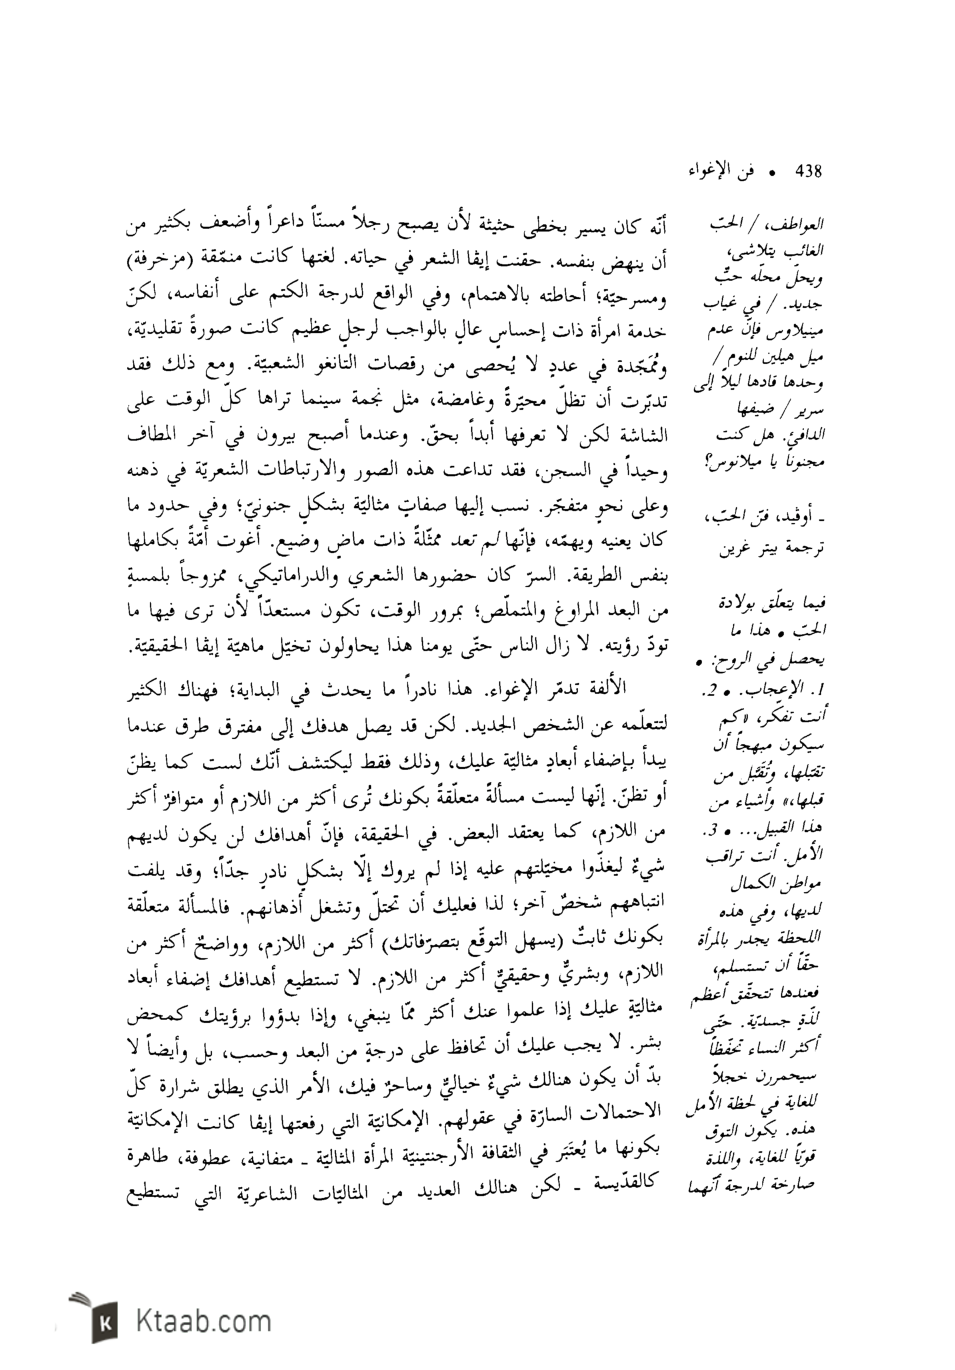 438 • فن الإغواء
العواطف، / الحبّ
الغائب يتلاشى،
ويحلّ محلّه حبٌّ
جديد. / في غياب
مينيلاوس فإنّ عدم
ميل هيلين للنوم /
وحدها قادها ليلاً إلى
سرير / ضيفها
الدافئ. هل كنت
مجنوناً يا ميلانوس؟
ـ أوڤيد، فنّ الحبّ،
ترجمة بيتر غرين
فيما يتعلّق بولادة
الحبّ • هذا ما
يحصل في الروح: •
1. الإعجاب. • 2.
أنت تفكّر، «كم
سيكون مبهجاً أن
تقبّلها، وتُقَبَّل من
قبلها،» وأشياء من
هذا القبيل... • 3.
الأمل. أنت تراقب
مواطن الكمال
لديها، وفي هذه
اللحظة يجدر بالمرأة
حقّاً أن تستسلم،
فعندها تتحقّق أعظم
لذّةٍ جسديّة. حتّى
أكثر النساء تحفّظاً
سيحمررن خجلاً
للغاية في لحظة الأمل
هذه. يكون التوق
قويّاً للغاية، واللذة
صارخة لدرجة أنّهما
أنّه كان يسير بخطى حثيثة لأن يصبح رجلاً مسنّاً داعراً وأضعف بكثير من
أن ينهض بنفسه. حقنت إيڤا الشعر في حياته. لغتها كانت منمّقة (مزخرفة)
ومسرحيّة؛ أحاطته بالاهتمام، وفي الواقع لدرجة الكتم على أنفاسه، لكنّ
خدمة امرأة ذات إحساسٍ عالٍ بالواجب لرجلٍ عظيم كانت صورةً تقليديّة،
ومُمَجّدة في عددٍ لا يُحصى من رقصات التانغو الشعبيّة. ومع ذلك فقد
تدبّرت أن تظلّ محيّرةً وغامضة، مثل نجمة سينما تراها كلّ الوقت على
الشاشة لكن لا تعرفها أبداً بحقّ. وعندما أصبح بيرون في آخر المطاف
وحيداً في السجن، فقد تداعت هذه الصور والارتباطات الشعريّة في ذهنه
وعلى نحوٍ متفجّر. نسب إليها صفاتٍ مثاليّة بشكلٍ جنونيّ؛ وفي حدود ما
كان يعنيه ويهمّه، فإنّها لم تعد ممثّلةً ذات ماضٍ وضيع. أغوت أمّةً بكاملها
بنفس الطريقة. السرّ كان حضورها الشعري والدراماتيكي، ممزوجاً بلمسةٍ
من البعد المراوغ والمتملّص؛ بمرور الوقت، تكون مستعدّاً لأن ترى فيها ما
تودّ رؤيته. لا زال الناس حتّى يومنا هذا يحاولون تخيّل ماهيّة إيڤا الحقيقيّة.
الألفة تدمّر الإغواء. هذا نادراً ما يحدث في البداية؛ فهناك الكثير
لتتعلّمه عن الشخص الجديد. لكن قد يصل هدفك إلى مفترق طرق عندما
يبدأ بإضفاء أبعادٍ مثاليّة عليك، وذلك فقط ليكتشف أنّك لست كما يظنّ
أو تظنّ. إنّها ليست مسألةً متعلّقةً بكونك تُرى أكثر من اللازم أو متوافرٌ أكثر
من اللازم، كما يعتقد البعض. في الحقيقة، فإنّ أهدافك لن يكون لديهم
شيءٌ ليغذّوا مخيّلتهم عليه إذا لم يروك إلّا بشكلٍ نادرٍ جدّاً؛ وقد يلفت
انتباههم شخصٌ آخر؛ لذا فعليك أن تحتلّ وتشغل أذهانهم. فالمسألة متعلّقة
بكونك ثابتٌ (يسهل التوقّع بتصرّفاتك) أكثر من اللازم، وواضحٌ أكثر من
اللازم، وبشريٌّ وحقيقيٌّ أكثر من اللازم. لا تستطيع أهدافك إضفاء أبعاد
مثاليّةٍ عليك إذا علموا عنك أكثر ممّا ينبغي، وإذا بدؤوا برؤيتك كمحض
بشر. لا يجب عليك أن تحافظ على درجةٍ من البعد وحسب، بل وأيضاً لا
بدّ أن يكون هنالك شيءٌ خياليٌّ وساحرٌ فيك، الأمر الذي يطلق شرارة كلّ
الاحتمالات السارّة في عقولهم. الإمكانيّة التي رفعتها إيڤا كانت الإمكانيّة
بكونها ما يُعتَبَر في الثقافة الأرجنتينيّة المرأة المثاليّة ـ متفانية، عطوفة، طاهرة
كالقدّيسة ـ لكن هنالك العديد من المثاليّات الشاعريّة التي تستطيع
Ktaab.com